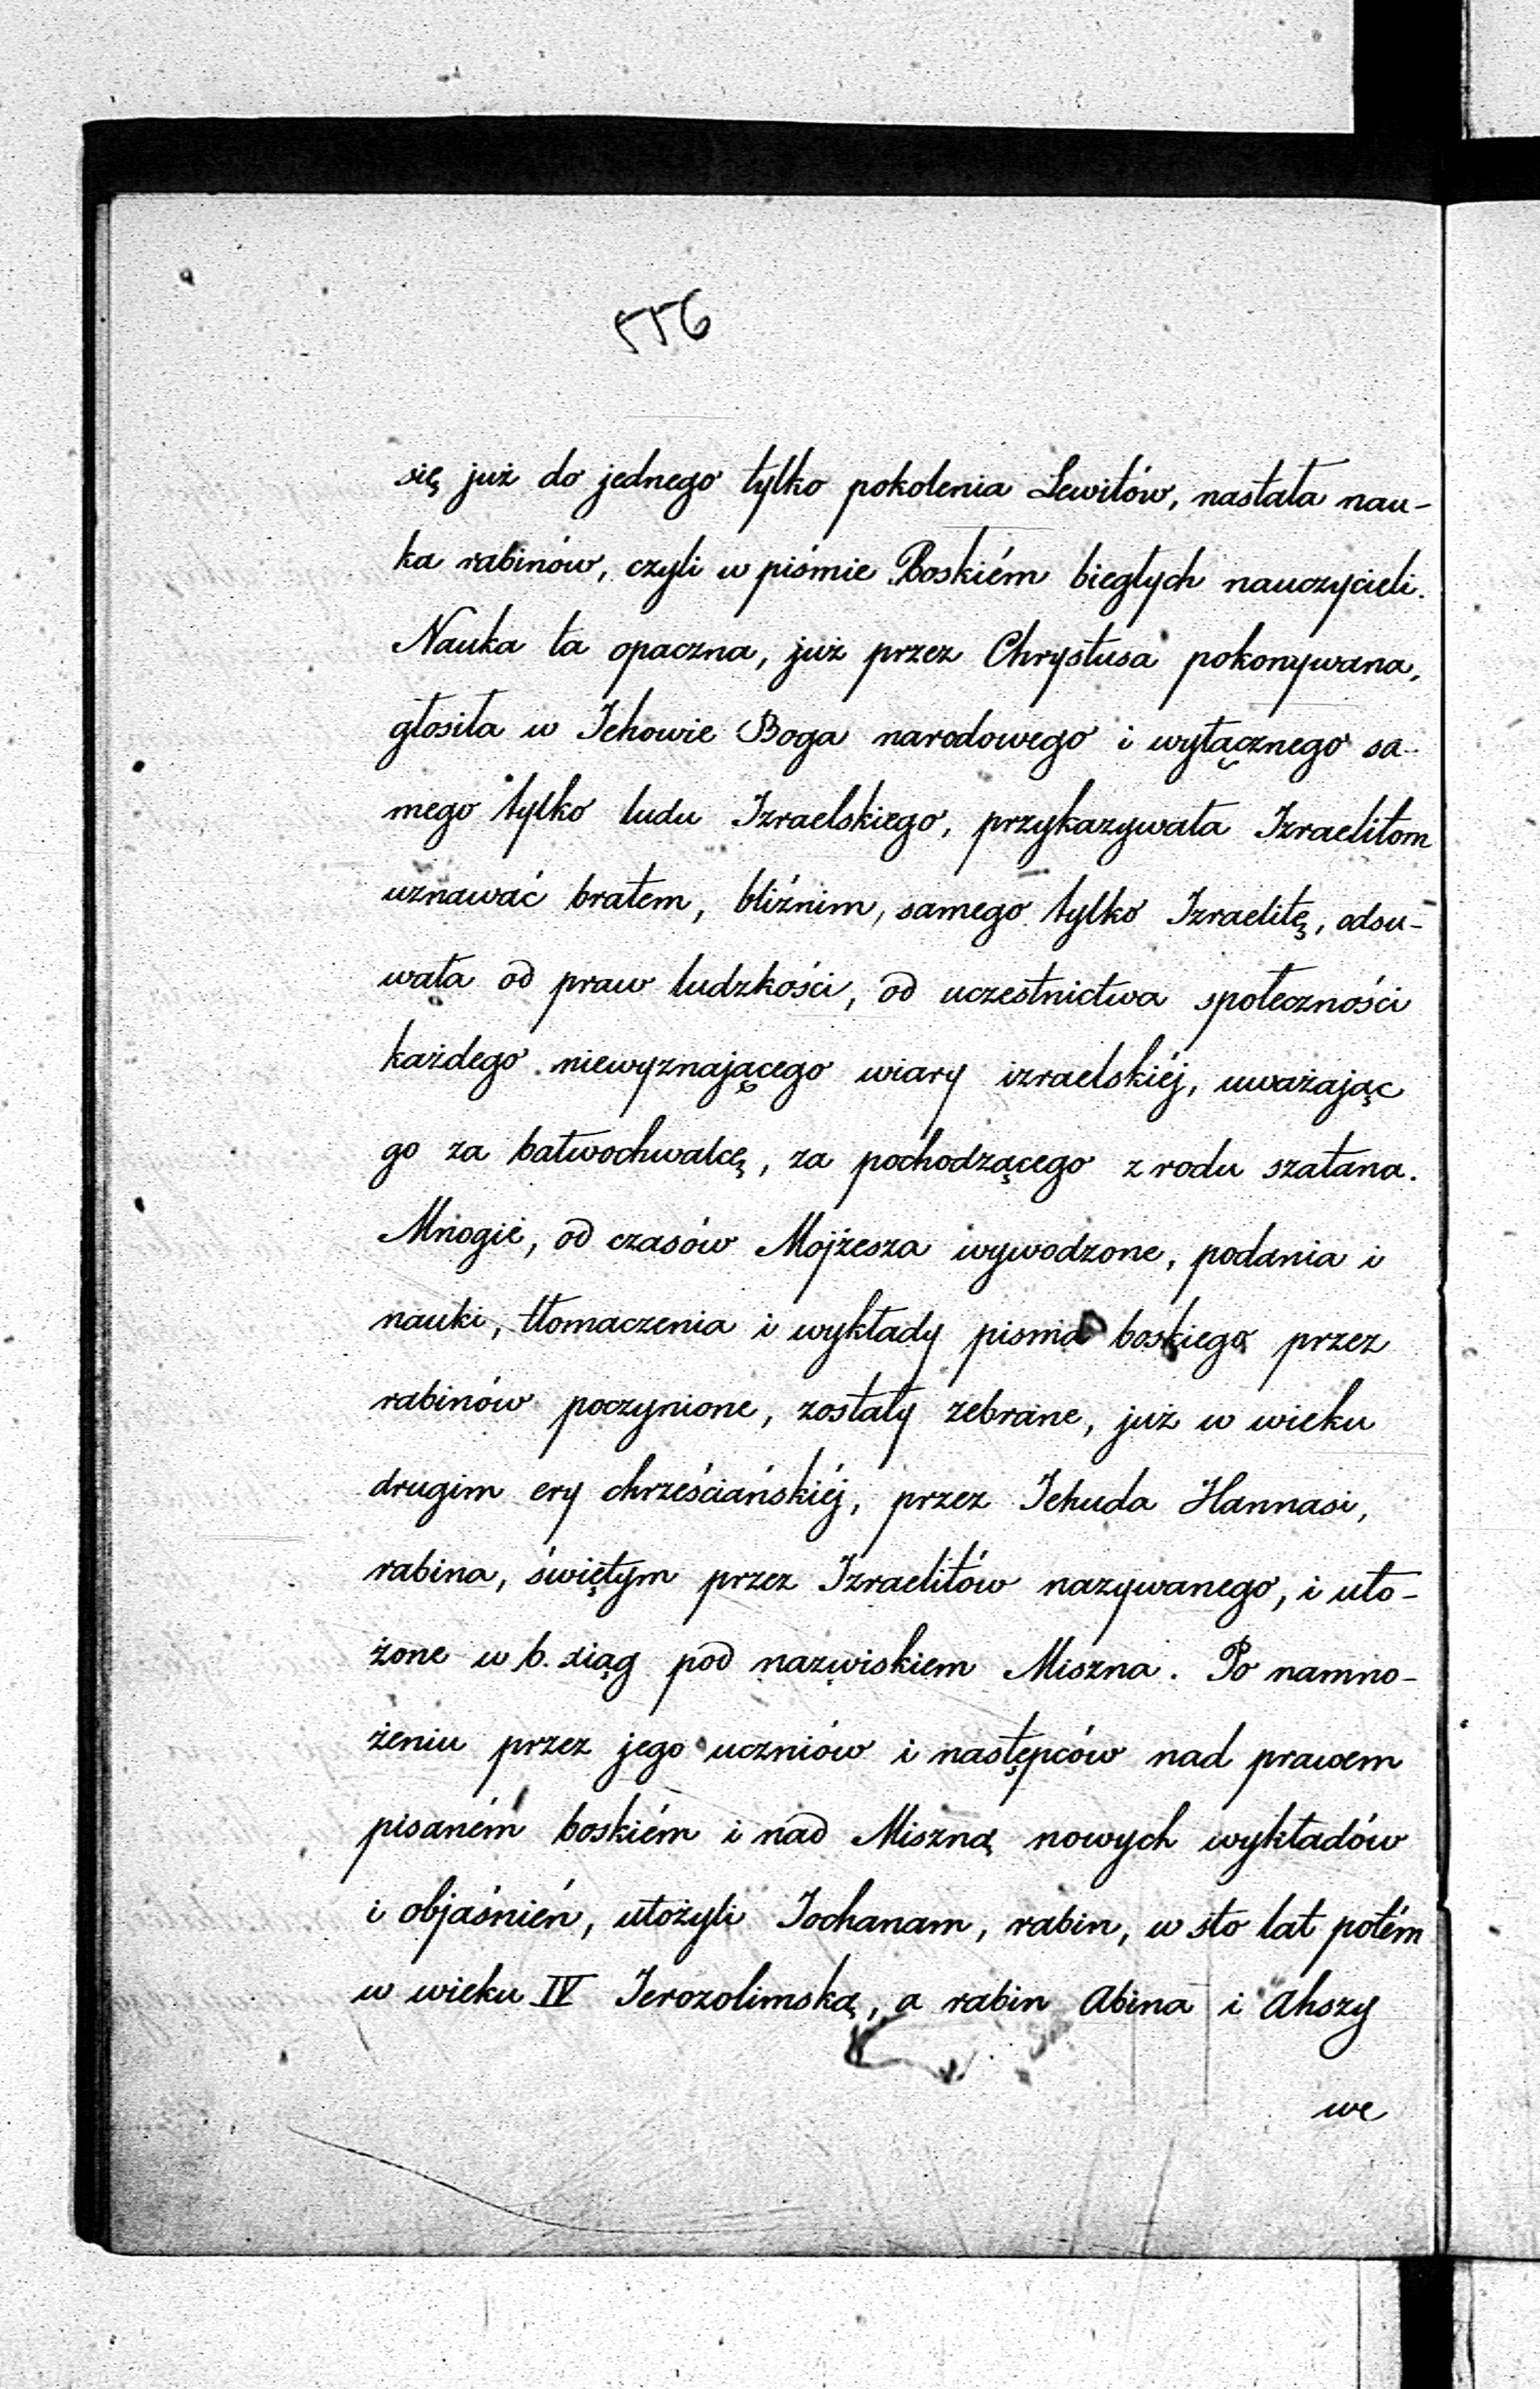 556
się już do jednego tylko pokolenia Lewitów, nastała nau-
ka rabinów, czyli w piśmie Boskiém biegłych nauczycieli.
Nauka ta opaczna, już przez Chrystusa pokonywana,
głosiła w Jehowie Boga narodowego i wyłącznego sa-
mego tylko ludu Izraelskiego, przykazywała Izraelitom
uznawać bratem, bliźnim, samego tylko Izraelitę, odsu-
wała od praw ludzkości, od uczestnictwa społeczności
każdego niewyznającego wiary izraelskiéj, uważając
go za bałwochwalcę, za pochodzącego z rodu szatana.
Mnogie, od czasów Mojżesza wywodzone, podania i
nauki, tłomaczenia i wykłady pisma boskiego przez
rabinów poczynione, zostały zebrane, już w wieku
drugim ery chrześciańskiéj, przez Jehuda Hannasi,
rabina, świętym przez Izraelitów nazywanego, i uło-
żone w 6. xiąg pod nazwiskiem Miszna. Po namno-
żeniu przez jego uczniów i następców nad prawem
pisaném boskiém i nad Miszną nowych wykładów
i objaśnień, ułożyli Jochanam, rabin, w sto lat potém
w wieku IV Jerozolimską, a rabin Abina i Ahszy
we